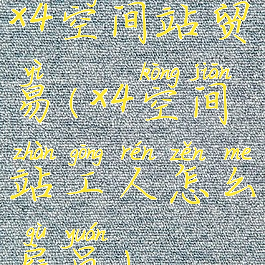 x4空间站贸
yì kōng jiān
易(x4空间
zhàn gōng rén zěn me
站工人怎么
gù yuán
雇员)